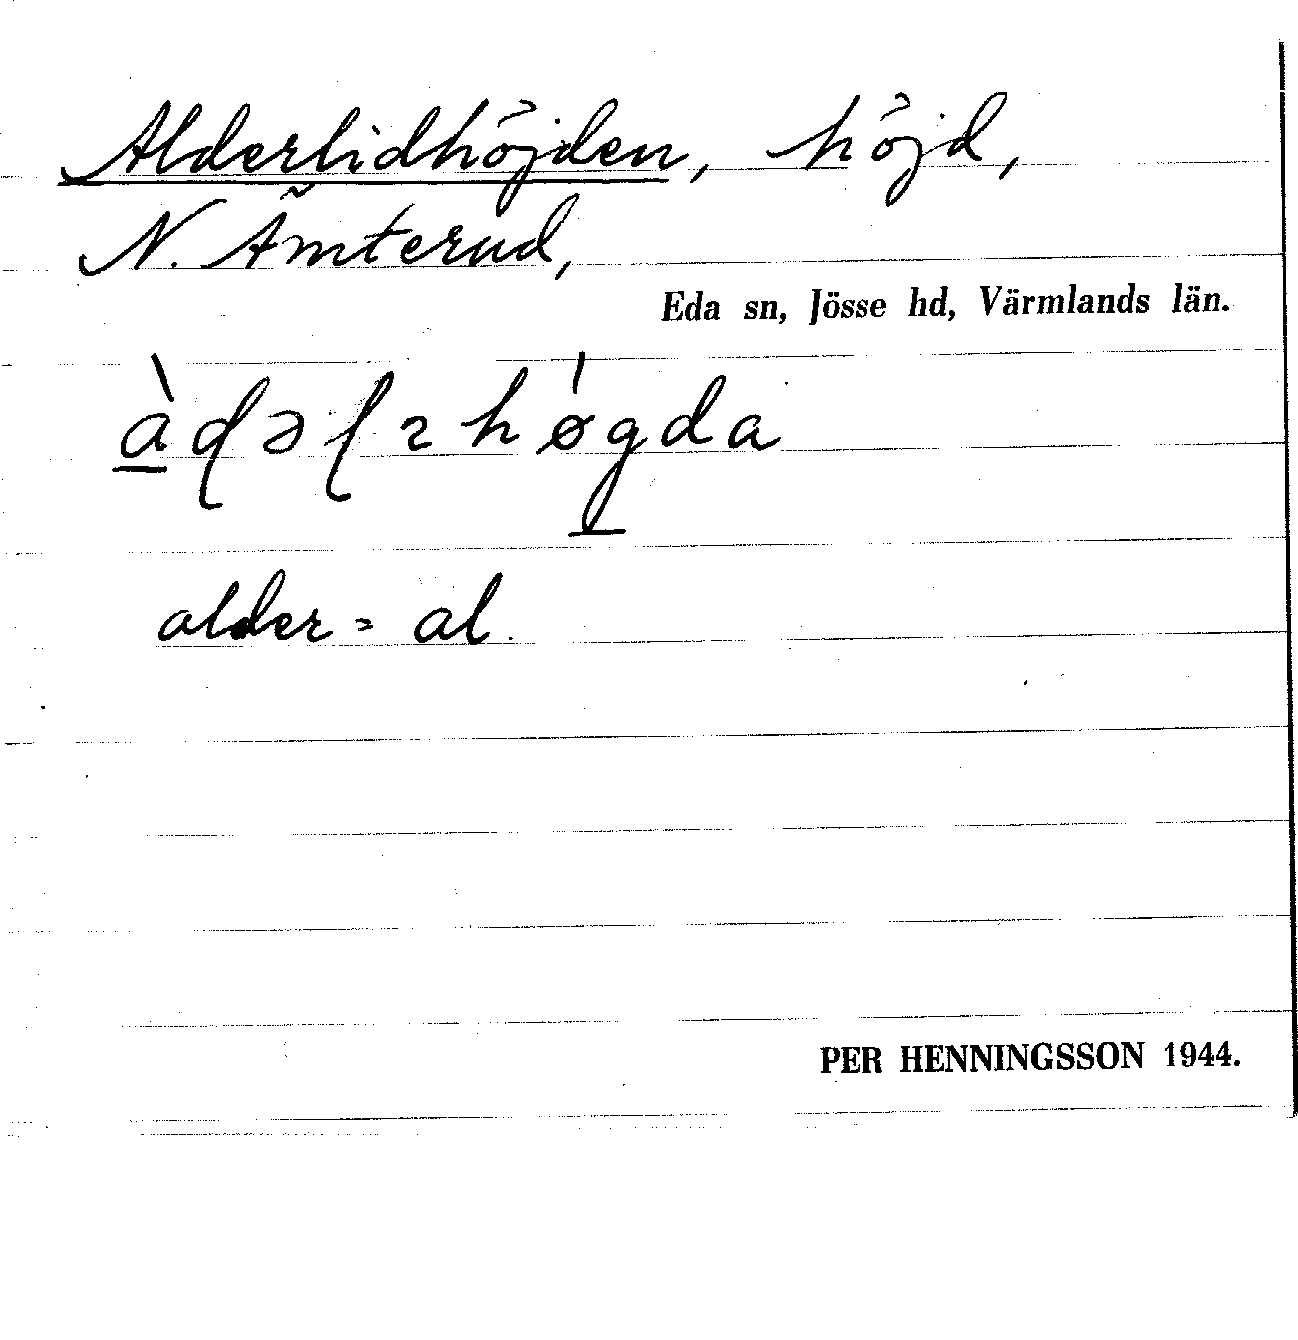 Alderlidhöjden, höjd,
N. Ämterud,
Eda sn, Jösse hd, Värmlands län.
alder = al.
PER HENNINGSSON 1944.